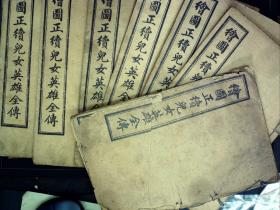 繪圖正續兒女英雄全傳
繪圖正續兒女英雄全傳
繪圖正續兒女英雄全傳
繪圖正續兒女英雄全傳
繪圖正續兒女英雄全傳
繪圖正續兒
繪圖正續兒女英雄全傳